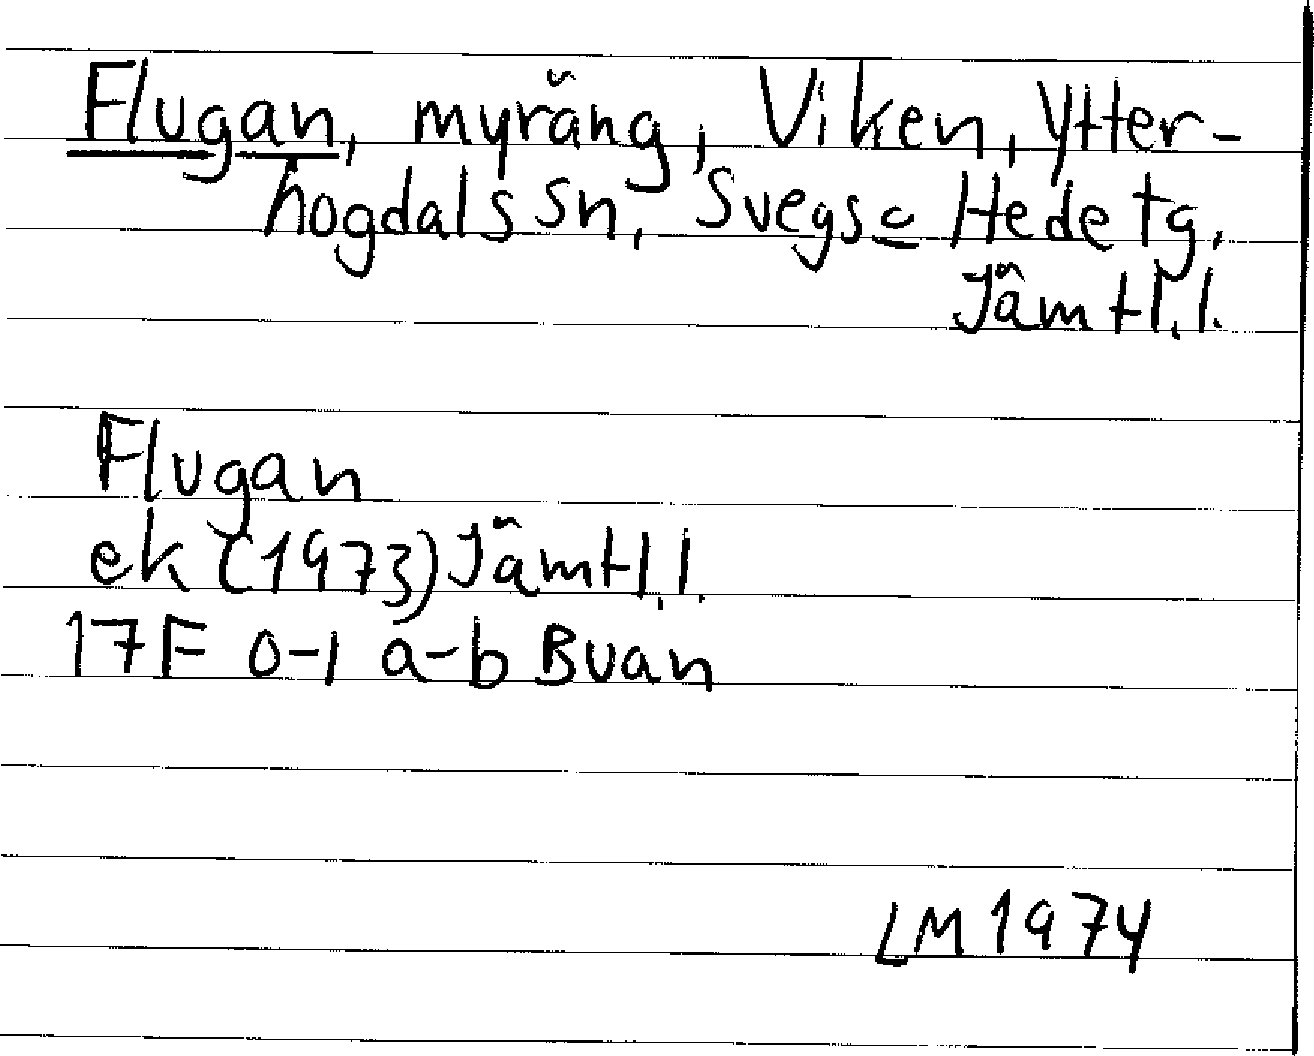 Flugan, myräng, Viken, Ytter-
hogdals sn, Svegs = Hede tg.
Jämtl.l.
Flugan
ek (1973) Jämtl.l.
17F 0-1 a-b Buan
LM 1974